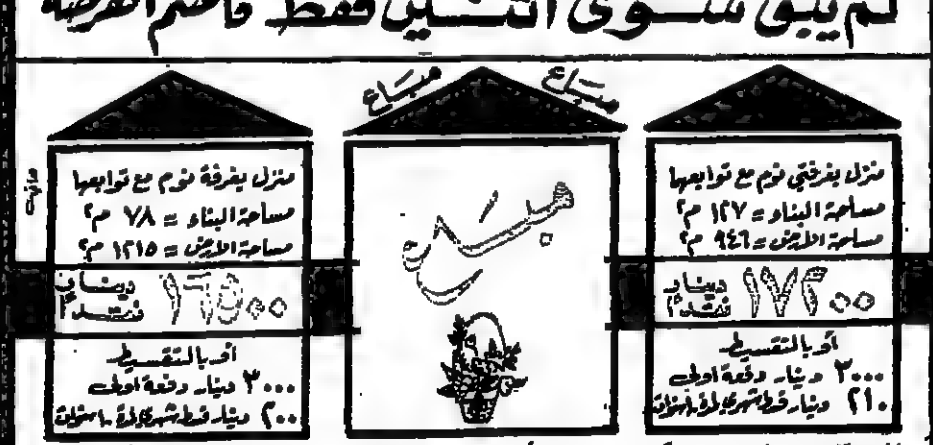 لم يبق سوى اثنين فقط فاغتنم الفرصة
منزل بغرفتي نوم مع توابعها
مساحة البناء = ١٢٧ م٢
مساحة الارض = ٩٤٦ م٢
١٧٢٠٠ دينار نقداً
أو بالتقسيط
٣٠٠٠ دينار دفعة اولى
٢١٠ دينار قسط شهري لمدة ١٠ سنوات
مباع مباع
مبروك
منزل بغرفة نوم مع توابعها
مساحة البناء = ٧٨ م٢
مساحة الارض = ١٢١٥ م٢
١٦٥٠٠ دينار نقداً
أو بالتقسيط
٣٠٠٠ دينار دفعة اولى
٢٠٠ دينار قسط شهري لمدة ١٠ سنوات